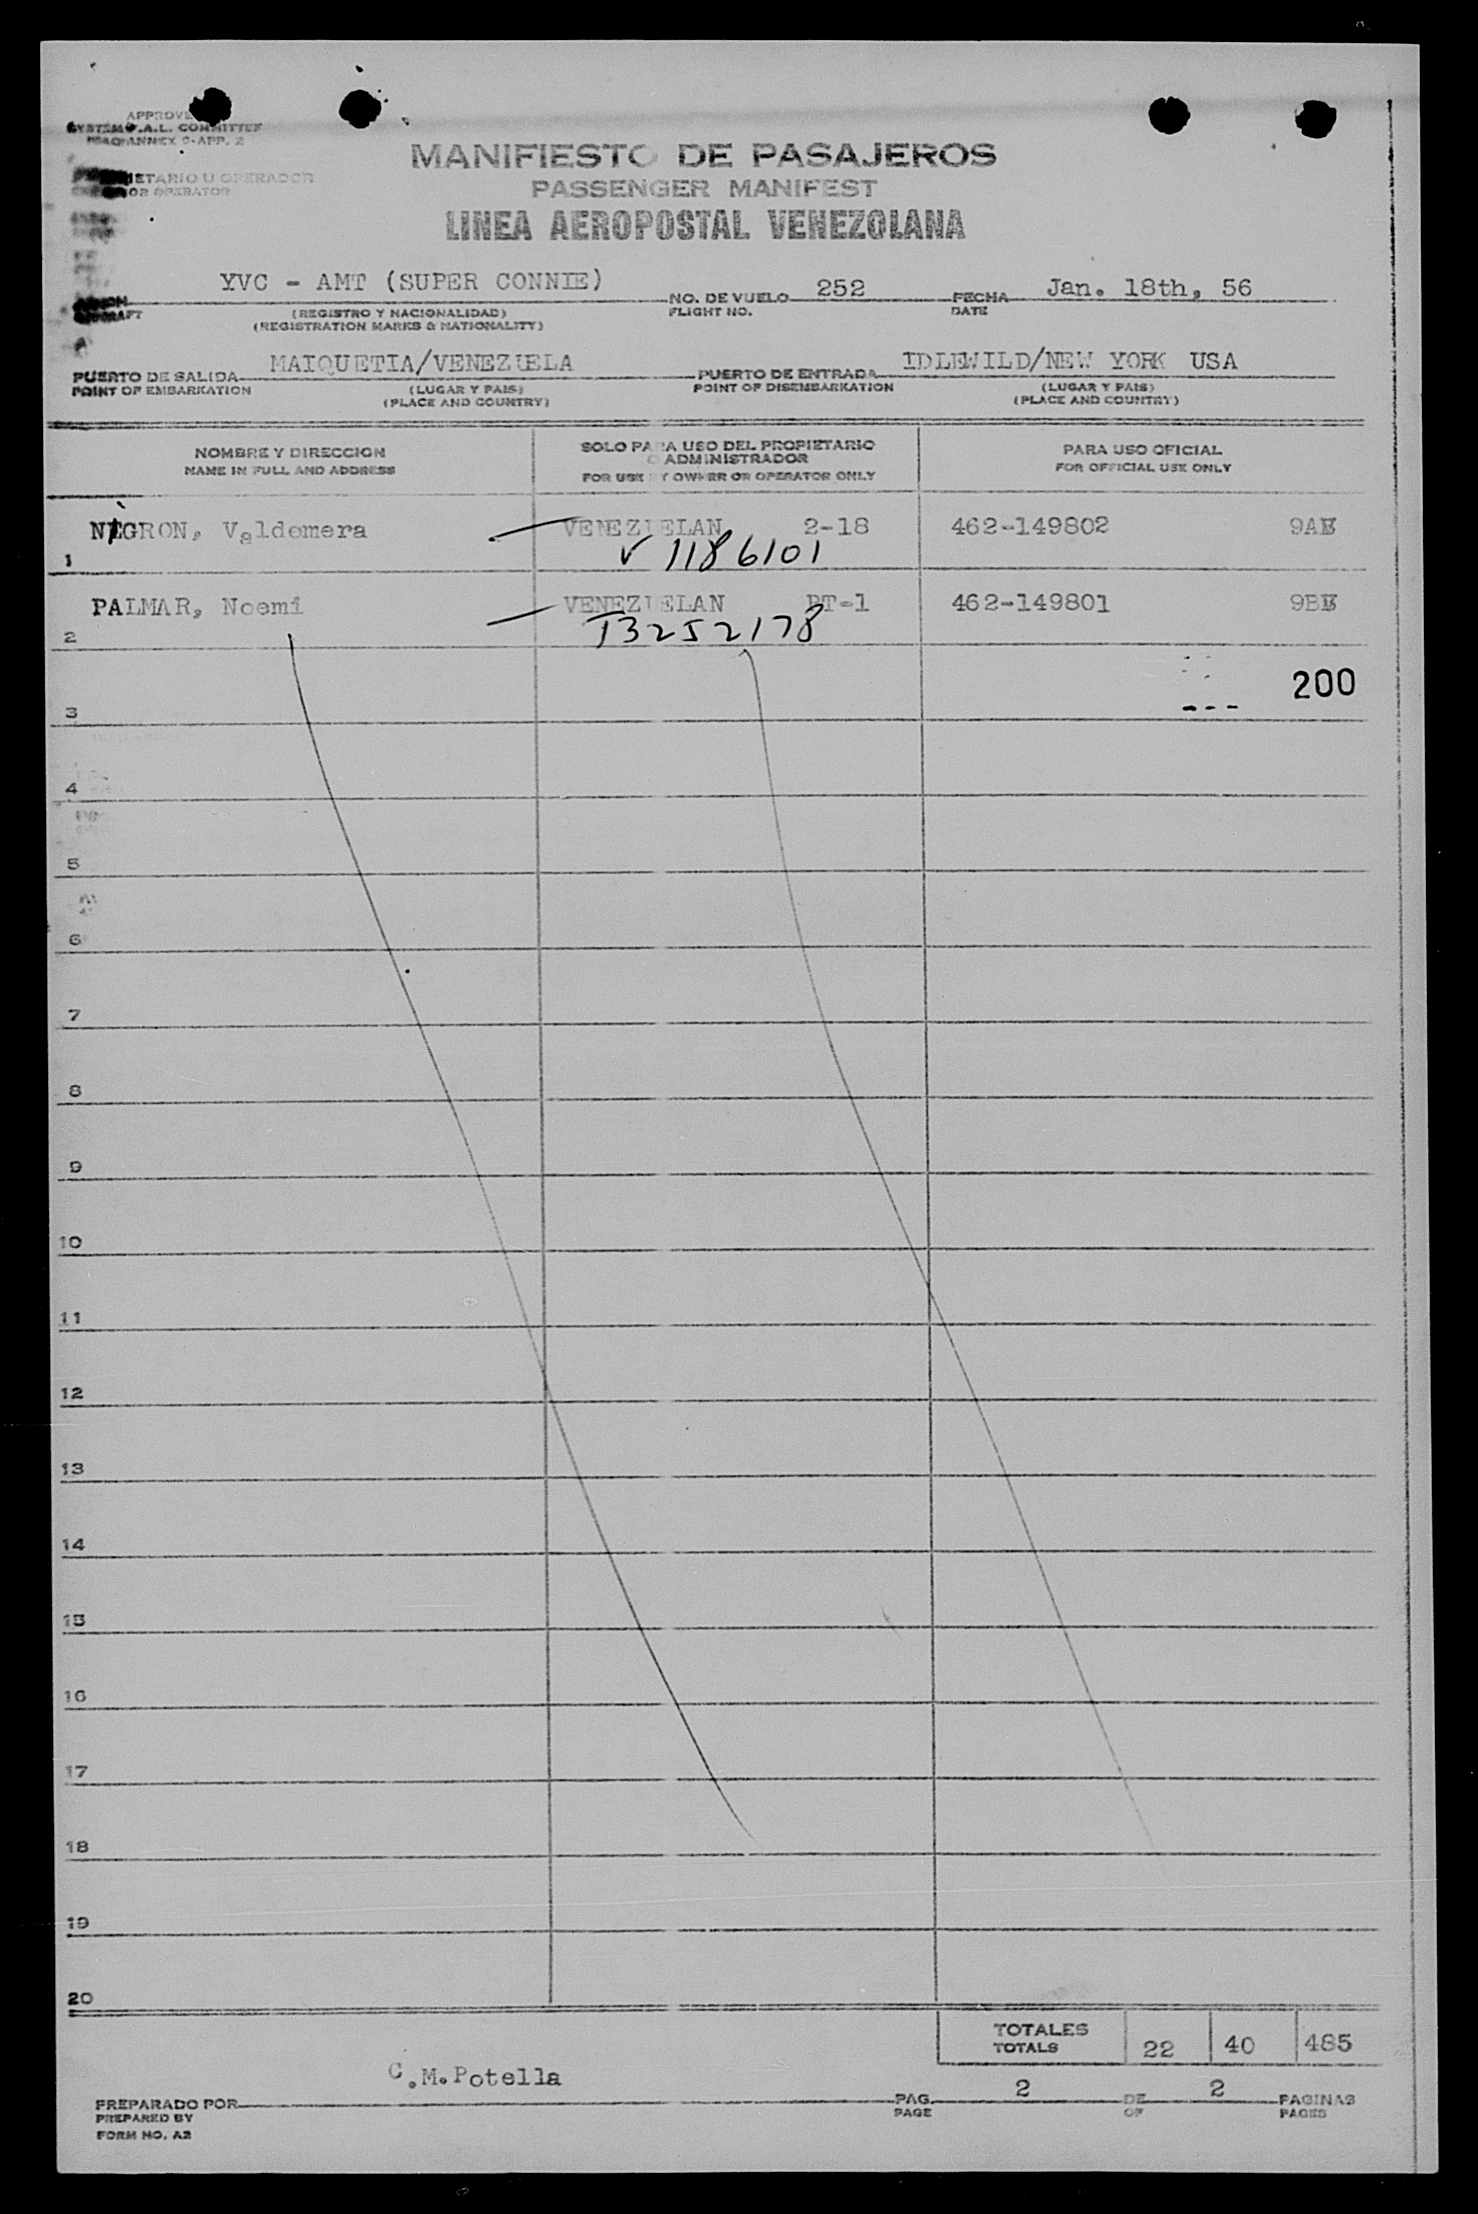 APPROVED
SYSTEM F.A.L. COMMITTEE
ICAO ANNEX 9-APP. 2
MANIFIESTO DE PASAJEROS
ETARIO U OPERADOR
OR OPERATOR
PASSENGER MANIFEST
LINEA AEROPOSTAL VENEZOLANA
YVC - AMT (SUPER CONNIE) NO. DE VUELO 252 FECHA Jan. 18th, 56
(REGISTRO Y NACIONALIDAD) FLIGHT NO. DATE
(REGISTRATION MARKS & NATIONALITY)
PUERTO DE SALIDA MAIQUETIA/VENEZUELA PUERTO DE ENTRADA IDLEWILD/NEW YORK USA
POINT OF EMBARKATION (LUGAR Y PAIS) POINT OF DISEMBARKATION (LUGAR Y PAIS)
(PLACE AND COUNTRY) (PLACE AND COUNTRY)
NOMBRE Y DIRECCION SOLO PARA USO DEL PROPIETARIO PARA USO OFICIAL
NAME IN FULL AND ADDRESS O ADMINISTRADOR FOR OFFICIAL USE ONLY
FOR USE BY OWNER OR OPERATOR ONLY
NEGRON, Valdemera VENEZUELAN 2-18 462-149802
1 V 1186101
PALMAR, Noemi VENEZUELAN PT-1 462-149801
2 T3252178
200
3
4
5
6
7
8
9
10
11
12
13
14
15
16
17
18
19
20
TOTALES 22 40 485
TOTALS
C.M.Potella
PREPARADO POR PAG. 2 DE 2 PAGINAS
PREPARED BY PAGE OF PAGES
FORM NO. A2